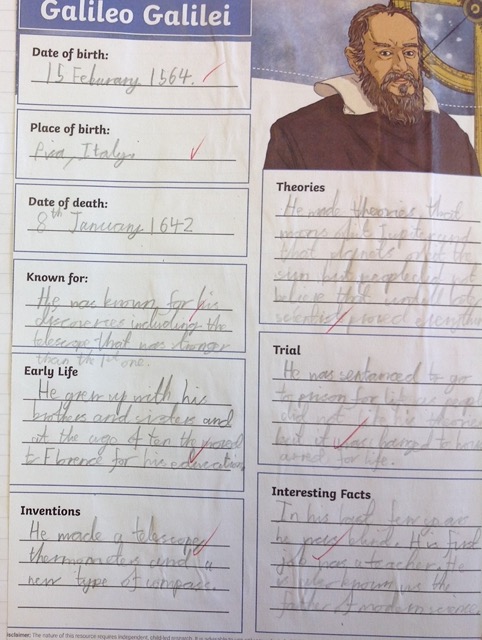 Galileo Galilei
Date of birth:
15 Feburary 1564.
Place of birth:
Pisa, Italy
Date of death:
8th January 1642
Known for:
He was known for his
discoveries including the
telescope that was stronger
than the 1st one.
Early Life
He grew up with his
brothers and sisters and
at the age of ten the moved
to Florence for his education
Inventions
He made a telescope
thermometer and a
new type of compass.
Theories
He made theories that
moons orbit Jupiter and
that planets orbit the
sun but people did not
believe that until later
scientist proved everything
Trial
He was sentanced to go
to prison for life as people
did not like is theories
but it was changed to house
arrest, for life.
Interesting Facts
In his last few years
he was blind. His first
job was a teacher. He
is known as the
father of modern science.
isclaimer: The nature of this resource requires independent, child-led research.